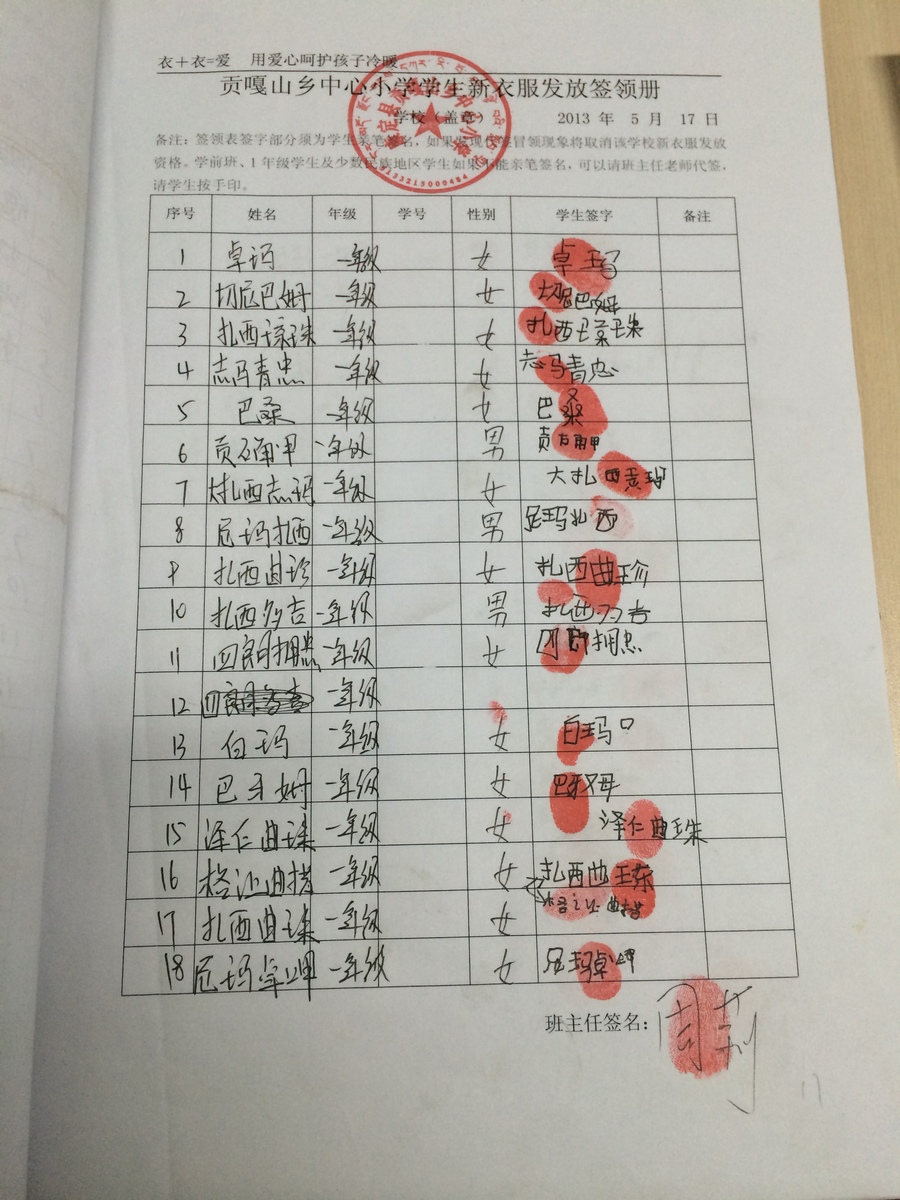 衣+衣=爱 用爱心呵护孩子冷暖
贡嘎山乡中心小学学生新衣服发放签领册
学校（盖章） 2013 年 5 月 17 日
备注：签领表签字部分须为学生亲笔签名，如果发现代签冒领现象将取消该学校新衣服发放
资格。学前班、1 年级学生及少数民族地区学生如果不能亲笔签名，可以请班主任老师代签，
请学生按手印。
序号 姓名 年级 学号 性别 学生签字 备注
1 卓玛 一年级 女 卓玛
2 切尼巴姆 一年级 女 切尼巴姆
3 扎西 一年级 女 扎西
4 志马青忠 一年级 女 志马青忠
5 巴桑 一年级 女 巴桑
6 一年级 男
7 大扎西志玛 一年级 女 大扎西
8 尼玛扎西 一年级 男 尼玛扎西
9 扎西曲珍 一年级 女 扎西曲珍
10 扎西多吉 一年级 男 扎西多吉
11 四郎拥忠 一年级 女 四郎拥忠
12 一年级
13 白玛 一年级 女 白玛
14 一年级 女
15 泽仁曲珠 一年级 女 泽仁曲珠
16 格让曲措 一年级 女 扎西曲
17 扎西曲珠 一年级 女 格让曲措
18 尼玛卓 一年级 女 尼玛卓
班主任签名：周莉
17
5133215000484